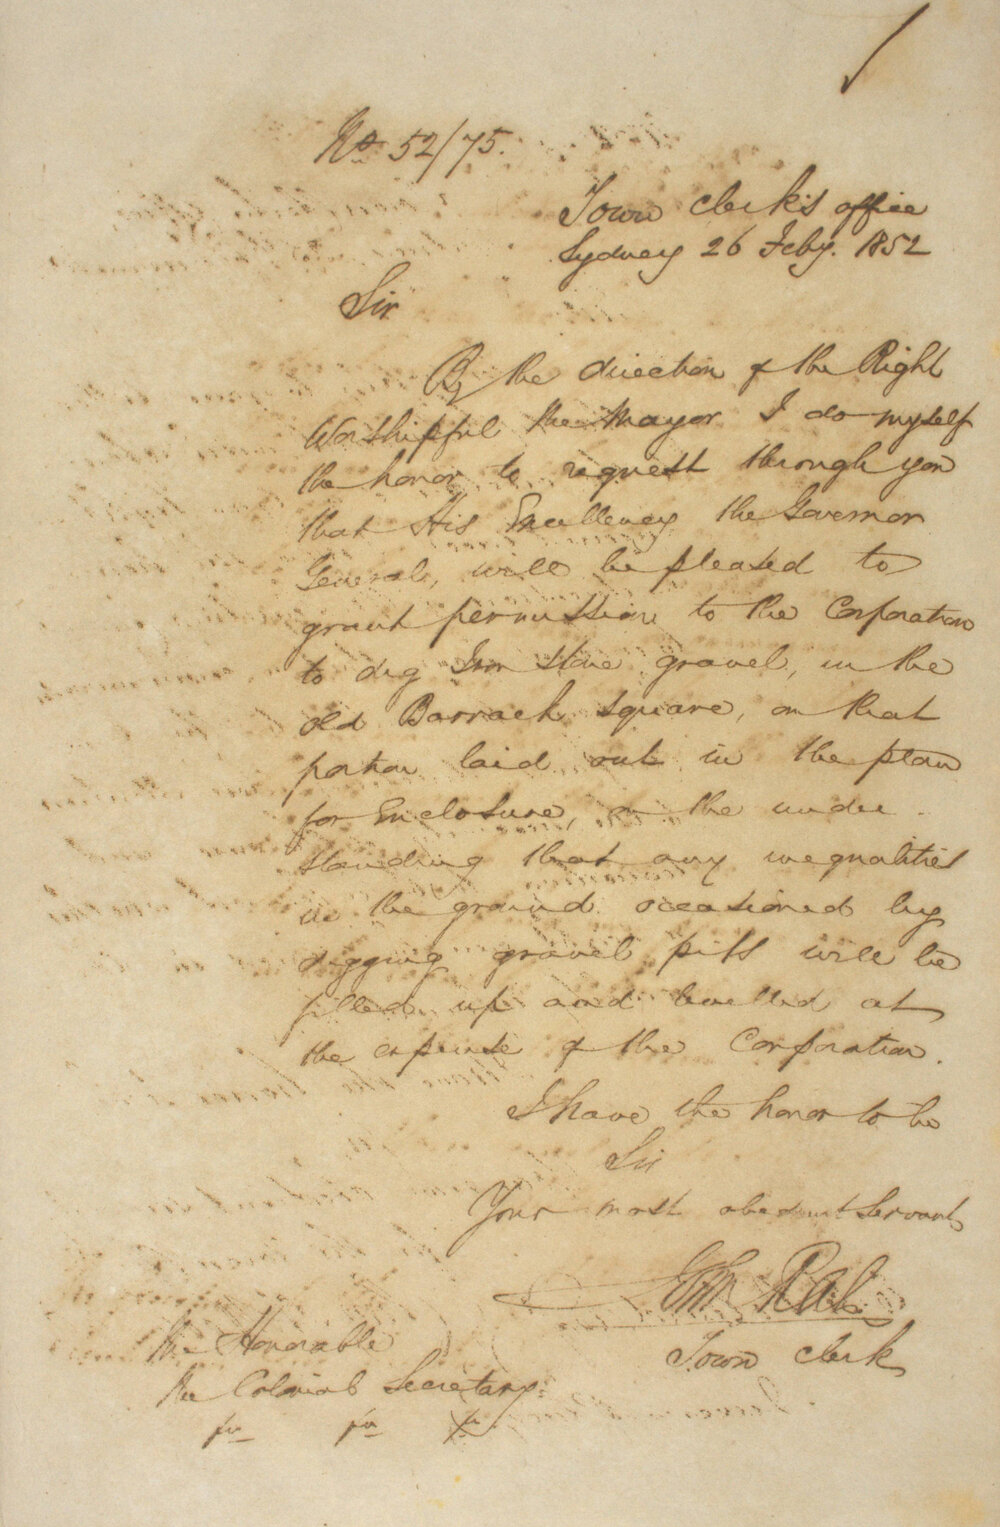 No 52/75.
Town Clerk's office
Sydney 26 Feby. 1852
Sir
By the direction of the Right
Worshipful the Mayor I do myself
the honor to request through you
that His Excellency the Governor
General, will be pleased to
grant permission to the Corporation
to dig Iron stone gravel, in the
old Barrack Square, on that
portion laid out in the plan
for Enclosure, on the under
standing that any inequalities
in the ground occasioned by
digging gravel pits will be
filled up and levelled at
the expense of the Corporation.
I have the honor to be
Sir
Your most obedient Servant
John Rae
Town Clerk
The Honorable
the Colonial Secretary